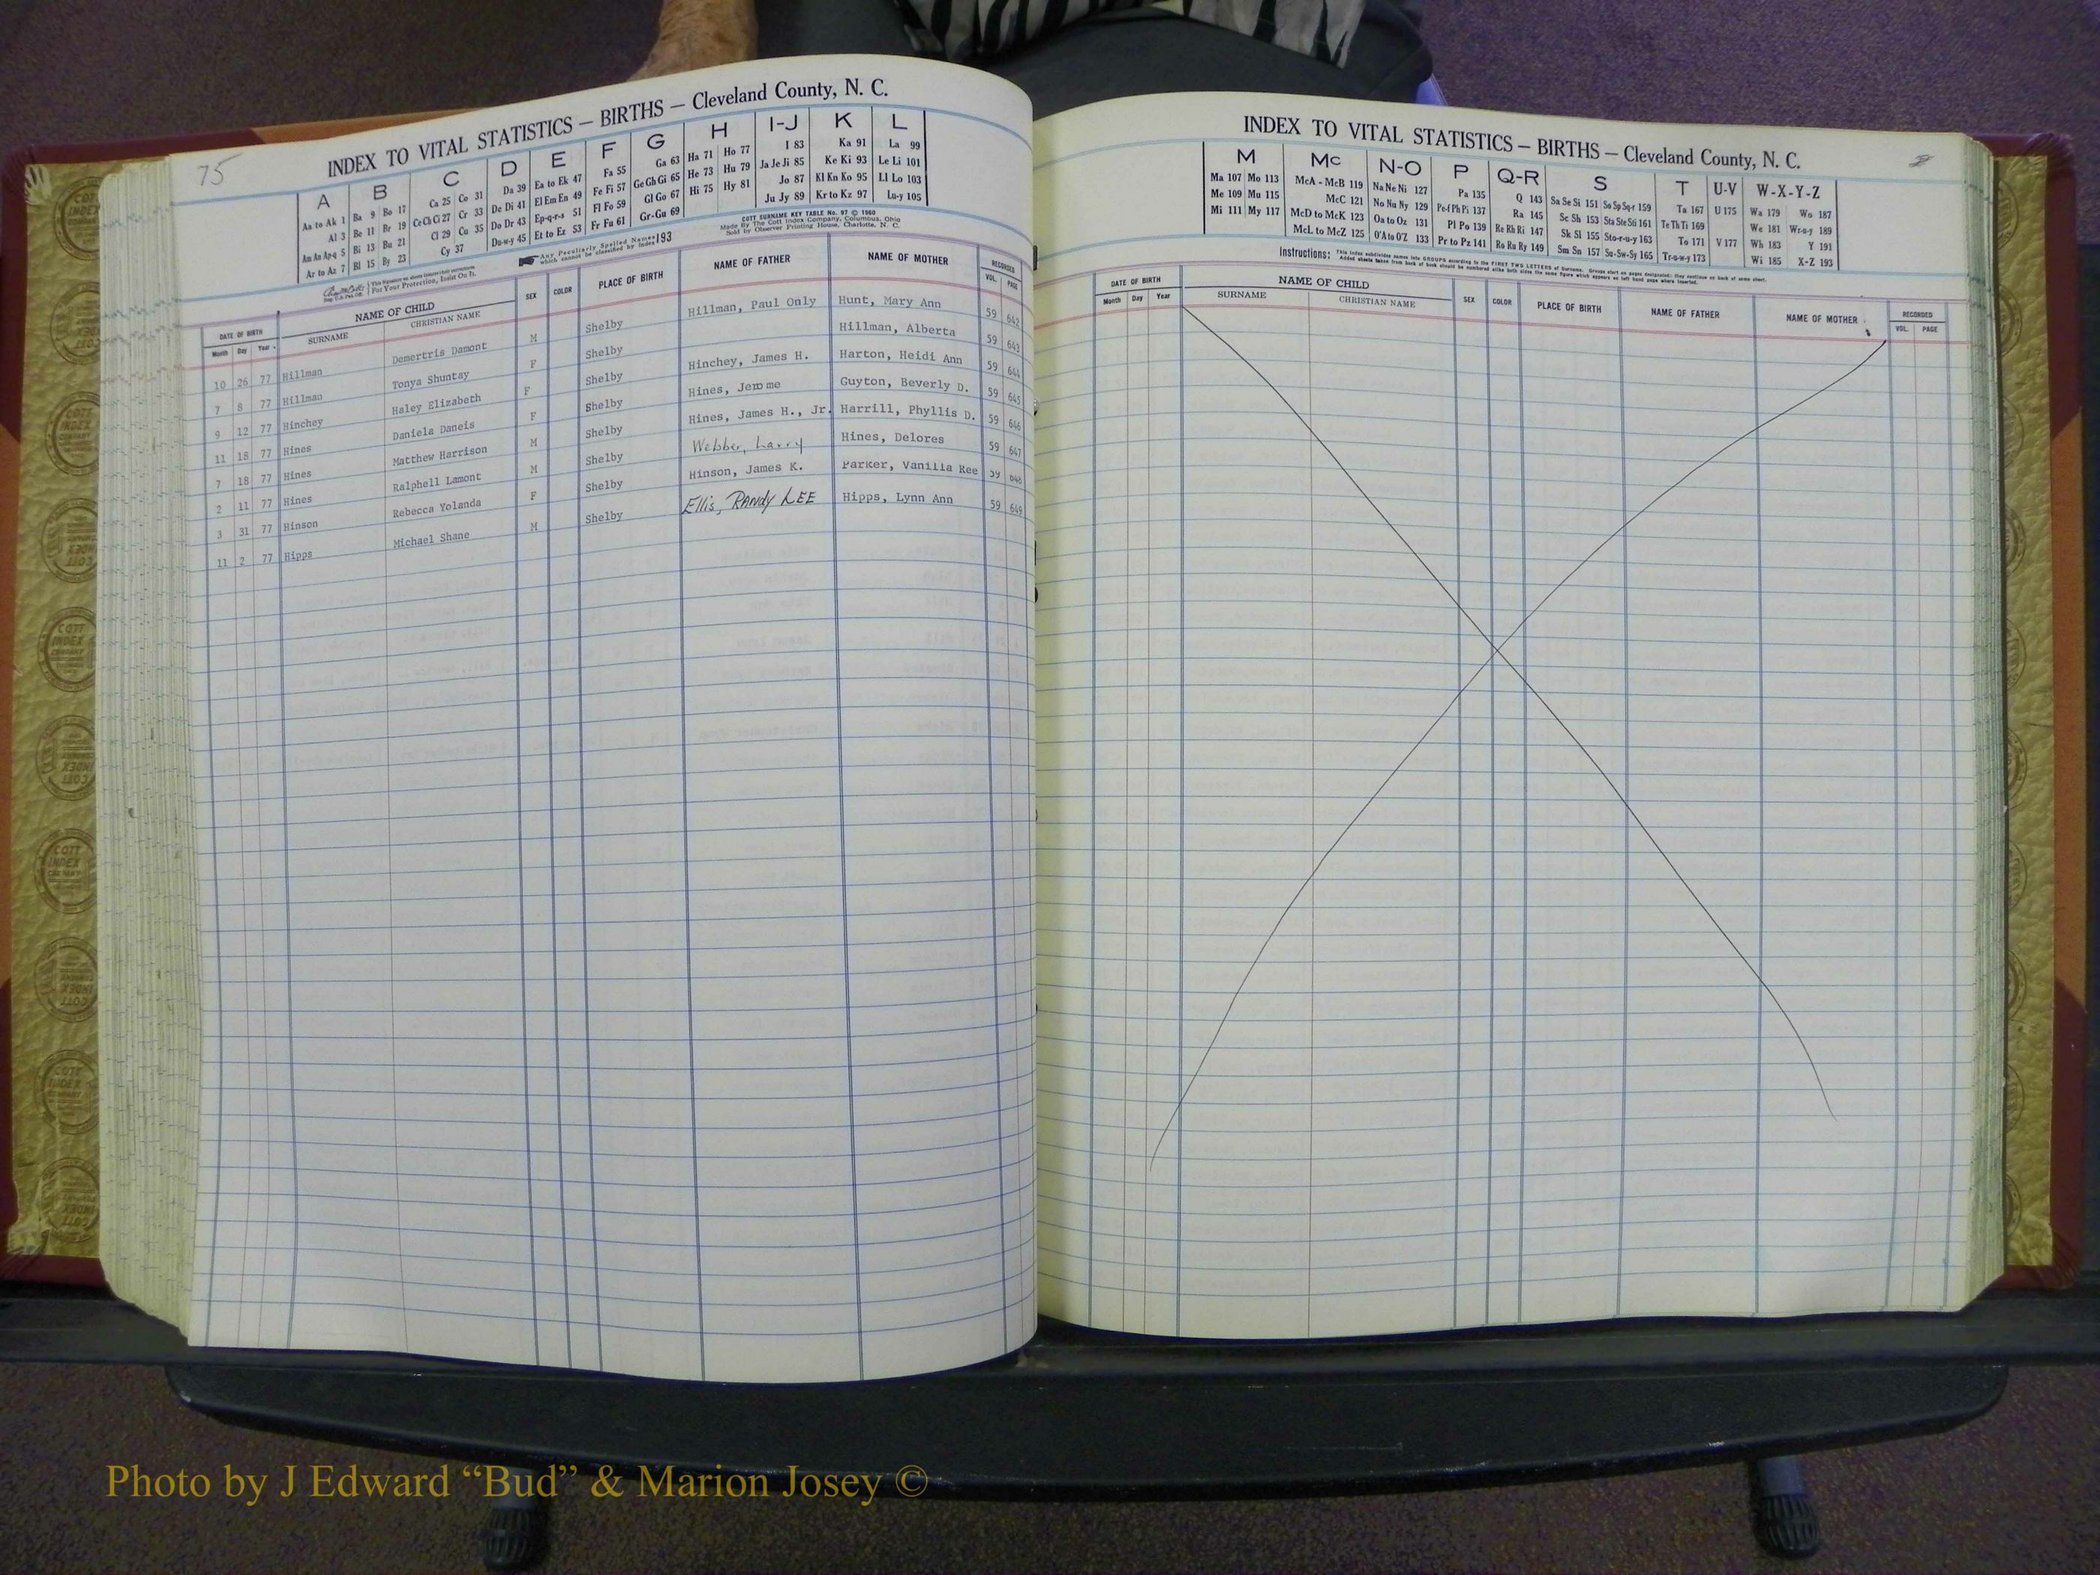 75
INDEX TO VITAL STATISTICS — BIRTHS — Cleveland County, N. C.
A B C D E F G H I-J K L
Aa to Ak 1 Ba 9 Bo 17 Ca 25 Co 31 Da 39 Ea to Ek 47 Fa 55 Ga 63 Ha 71 Ho 77 I 83 Ka 91 La 99
Al 3 Be 11 Br 19 Ce Ch Ci 27 Cr 33 De Di 41 El Em En 49 Fe Fi 57 Ge Gh Gi 65 He 73 Hu 79 Ja Je Ji 85 Ke Ki 93 Le Li 101
Am An Ap-q 5 Bi 13 Bu 21 Cl 29 Cu 35 Do Dr 43 Ep-q-r-s 51 Fl Fo 59 Gl Go 67 Hi 75 Hy 81 Jo 87 Kl Kn Ko 95 Ll Lo 103
Ar to Az 7 Bl 15 By 23 Cy 37 Du-w-y 45 Et to Ez 53 Fr Fu 61 Gr-Gu 69 Ju Jy 89 Kr to Kz 97 Lu-y 105
For Your Protection, Insist On It.
Any Peculiarly Spelled Names which cannot be classified by Index 193
COTT SURNAME KEY TABLE No. 97 © 1960
Made By The Cott Index Company, Columbus, Ohio
Sold by Observer Printing House, Charlotte, N. C.
DATE OF BIRTH NAME OF CHILD SEX COLOR PLACE OF BIRTH NAME OF FATHER NAME OF MOTHER RECORDED
Month Day Year SURNAME CHRISTIAN NAME VOL. PAGE
10 26 77 Hillman Demertris Damont M Shelby Hillman, Paul Only Hunt, Mary Ann 59 642
7 8 77 Hillman Tonya Shuntay F Shelby Hillman, Alberta 59 643
9 12 77 Hinchey Haley Elizabeth F Shelby Hinchey, James H. Harton, Heidi Ann 59 644
11 18 77 Hines Daniela Daneis F Shelby Hines, Jerome Guyton, Beverly D. 59 645
7 18 77 Hines Matthew Harrison M Shelby Hines, James H., Jr. Harrill, Phyllis D. 59 646
2 11 77 Hines Ralphell Lamont M Shelby Webber, Larry Hines, Delores 59 647
3 31 77 Hinson Rebecca Yolanda F Shelby Hinson, James K. Parker, Vanilla Ree 59 648
11 2 77 Hipps Michael Shane M Shelby Ellis, RANdy LEE Hipps, Lynn Ann 59 649
INDEX TO VITAL STATISTICS — BIRTHS — Cleveland County, N. C.
M Mc N-O P Q-R S T U-V W-X-Y-Z
Ma 107 Mo 113 McA - McB 119 Na Ne Ni 127 Pa 135 Q 143 Sa Se Si 151 So Sp Sq-r 159 Ta 167 U 175 Wa 179 Wo 187
Me 109 Mu 115 McC 121 No Nu Ny 129 Pe-f Ph Pi 137 Ra 145 Sc Sh 153 Sta Ste Sti 161 Te Th Ti 169 We 181 Wr-u-y 189
Mi 111 My 117 McD to McK 123 Oa to Oz 131 Pl Po 139 Re Rh Ri 147 Sk Sl 155 Sto-r-u-y 163 To 171 V 177 Wh 183 Y 191
McL to McZ 125 O'A to O'Z 133 Pr to Pz 141 Ro Ru Ry 149 Sm Sn 157 Su-Sw-Sy 165 Tr-u-w-y 173 Wi 185 X-Z 193
Instructions: This index subdivides names into GROUPS according to the FIRST TWO LETTERS of Surname. Groups start on pages designated; they continue on back of same sheet.
Added sheets taken from back of book should be numbered alike both sides the same figure which appears on left hand page where inserted.
DATE OF BIRTH NAME OF CHILD SEX COLOR PLACE OF BIRTH NAME OF FATHER NAME OF MOTHER RECORDED
Month Day Year SURNAME CHRISTIAN NAME VOL. PAGE
COTT INDEX COMPANY
Photo by J Edward “Bud” & Marion Josey ©